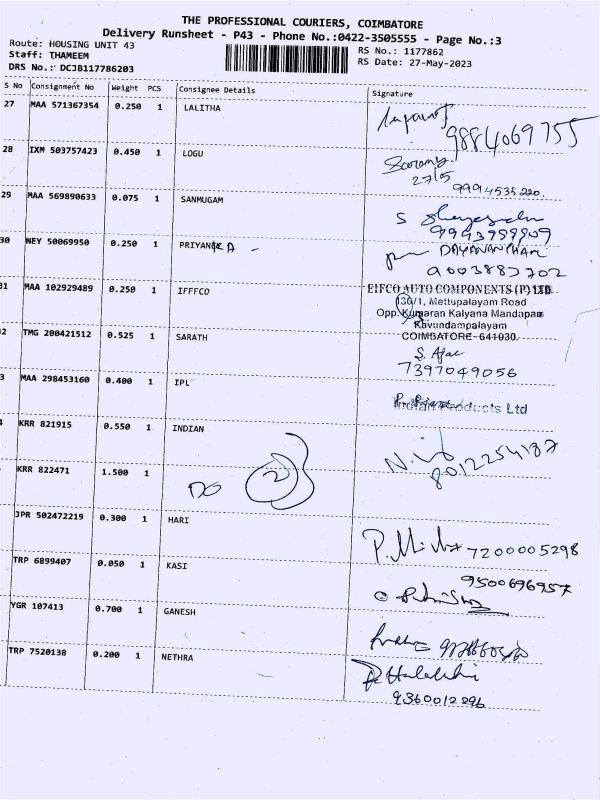 THE PROFESSIONAL COURIERS, COIMBATORE
Delivery Runsheet - P43 - Phone No.:0422-3505555 - Page No.:3
Route: HOUSING UNIT 43 RS No.: 1177862
Staff: THAMEEM RS Date: 27-May-2023
DRS No.: DCJB117786203
S No Consignment No Weight PCS Consignee Details Signature
27 MAA 571367354 0.250 1 LALITHA
9884069755
28 IXM 503757423 0.450 1 LOGU
27/5
9994535220
29 MAA 569890633 0.075 1 SANMUGAM
S
30 NEY 50069950 0.250 1 PRIYANKA A -
9003883702
31 MAA 102929489 0.250 1 IFFFCO
EIFCO AUTO COMPONENTS (P) LTD
130/1, Mettupalayam Road
Opp. Kumaran Kalyana Mandapam
Kavundampalayam
COIMBATORE - 641030.
2 TMG 200421512 0.525 1 SARATH
7397049056
3 MAA 298453160 0.400 1 IPL
Indian Products Ltd
4 KRR 821915 0.550 1 INDIAN
8012254187
KRR 822471 1.500 1
2
JPR 502472219 0.300 1 HARI
7200005298
TRP 6899407 0.050 1 KASI
9500696957
YGR 107413 0.700 1 GANESH
TRP 7520138 0.200 1 NETHRA
9360012296